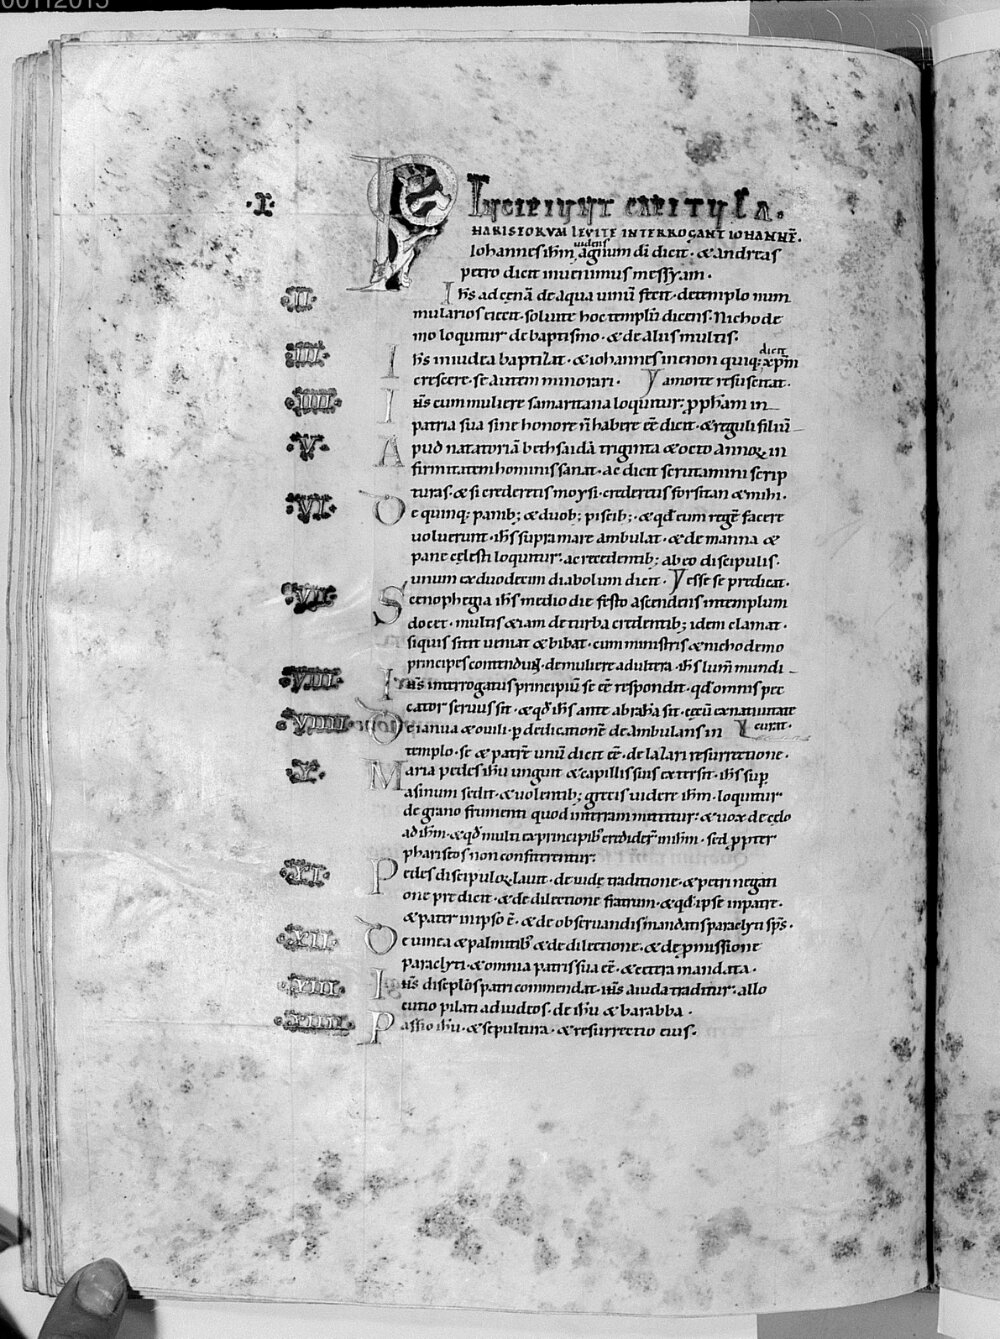 00112015
INCIPIUNT CAPITULA.
.I. PHARISEORVM LEVITE INTERROGANT IOHANNĒ.
Iohannes ihm uidens agnum di dicit · & andreas
petro dicit inuenimus messyam.
.II. Ihs ad cenā de aqua uinū fecit · de templo num
mularios eiecit · soluite hoc templū dicens. Nichode
mo loquitur de baptismo · & de aliis multis.
.III. Ihs in iudea baptizat · & iohannes in enon quiq; dicit xpm
crescere · se autem minorari. a morte resuscitat.
.IIII. Ihs cum muliere samaritana loquitur: pphām in
patria sua sine honore n̄ habere eē dicit · & reguli filiū
.V. Apud natatoriā bethsaidā triginta & octo annoꝝ in
firmitatem hominis sanat · ac dicit scrutamini scrip
turas · & si crederetis moysi · crederetis forsitan & mihi.
.VI. De quinq; panib; & duob; piscib; · & qd cum regē facere
uoluerunt · ihs supra mare ambulat · & de manna &
pane celesti loquitur: ac recedentib; ab eo discipulis.
unum ex duodecim diabolum dicit. esse se predicat.
.VII. Scenophegia ihs medio die festo ascendens in templum
docet · multis &iam de turba credentib; idem clamat.
siquis sitit ueniat & bibat · cum ministris & nichodemo
principes contendunt · de muliere adultera · ihs lum̄ mundi
.VIII. Ihs interrogatus principiū se eē respondit · qd omnis pec
cator seruus sit · & qd ihs ante abraha sit · cecū ex natiuitate
.VIIII. De ianua & ouili · p dedicationē deambulans in curat.
templo · se & patrē unū dicit eē · de lazari resurrectione.
.X. Maria pedes ihu unguit & capillis suis extersit · ihs sup
asinum sedit · & uolentib; grecis uidere ihm · loquitur
de grano frumenti quod in terram mittitur: & uox de celo
ad ihm · & qd multi ex principib' crediderʳ in ihm · sed ppter
phariseos non confiterentur:
.XI. Pedes discipuloꝝ lauit · de iude traditione · & petri negati
one predicit · & de dilectione fratrum · & qd ipse in patre.
& pater in ipso ē · & de obseruandis mandatis paraclyti sp̄s.
.XII. De uinea & palmitib' & de dilectione · & de pmissione
paraclyti · & omnia patris sua eē · & cetera mandata.
.XIII. Ihs discplos patri commendat · ihs a iuda traditur: allo
cutio pilati ad iudeos · de ihu & barabba.
.XIIII. Passio ihu · & sepultura · & resurrectio eius.